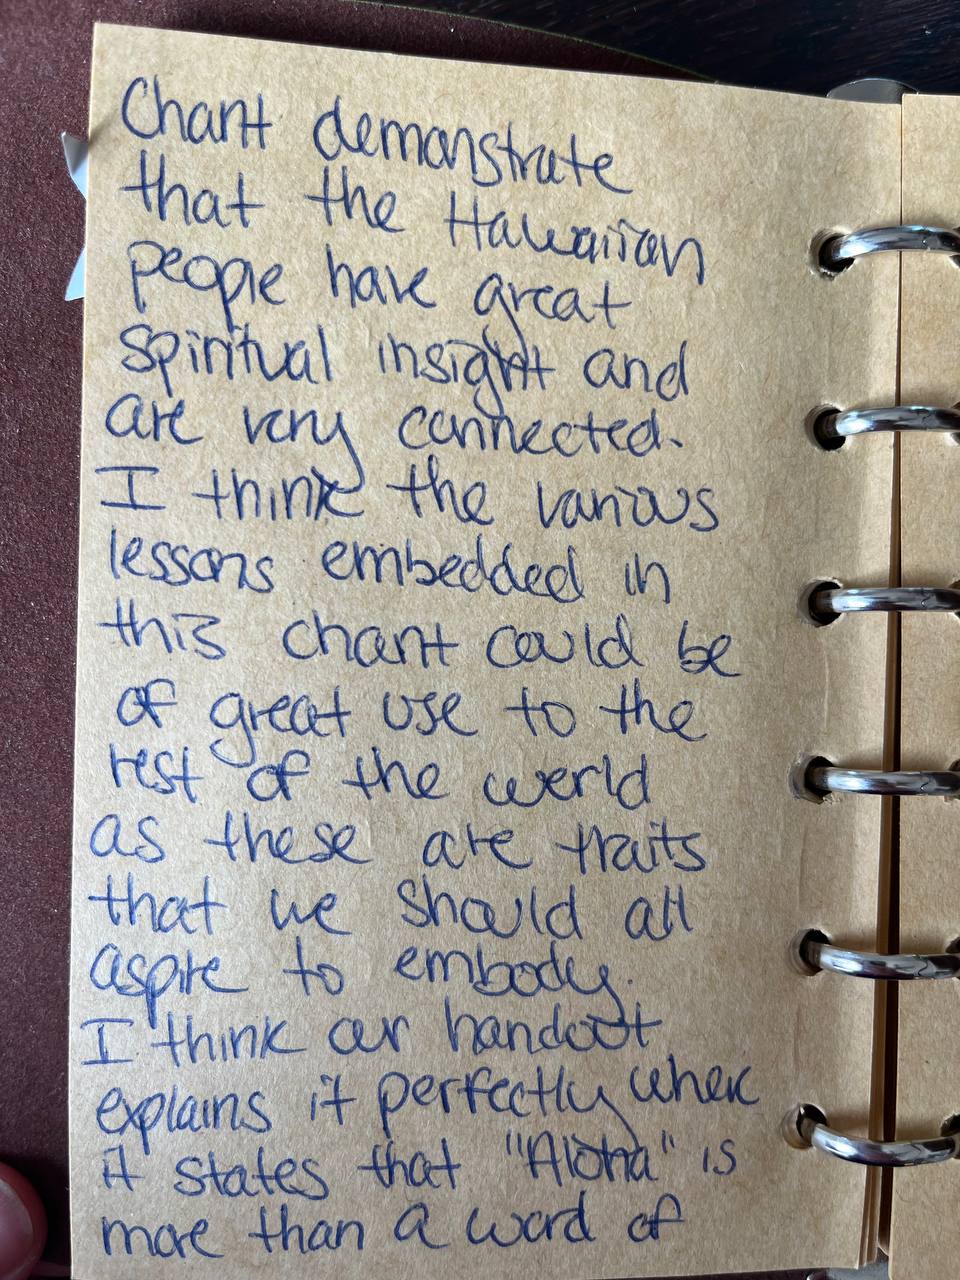 Chant demonstrate
that the Hawaiian
people have great
spiritual insight and
are very connected.
I think the various
lessons embedded in
this chant could be
of great use to the
rest of the world
as these are traits
that we should all
aspire to embody.
I think our handout
explains it perfectly where
it states that "Aloha" is
more than a word of